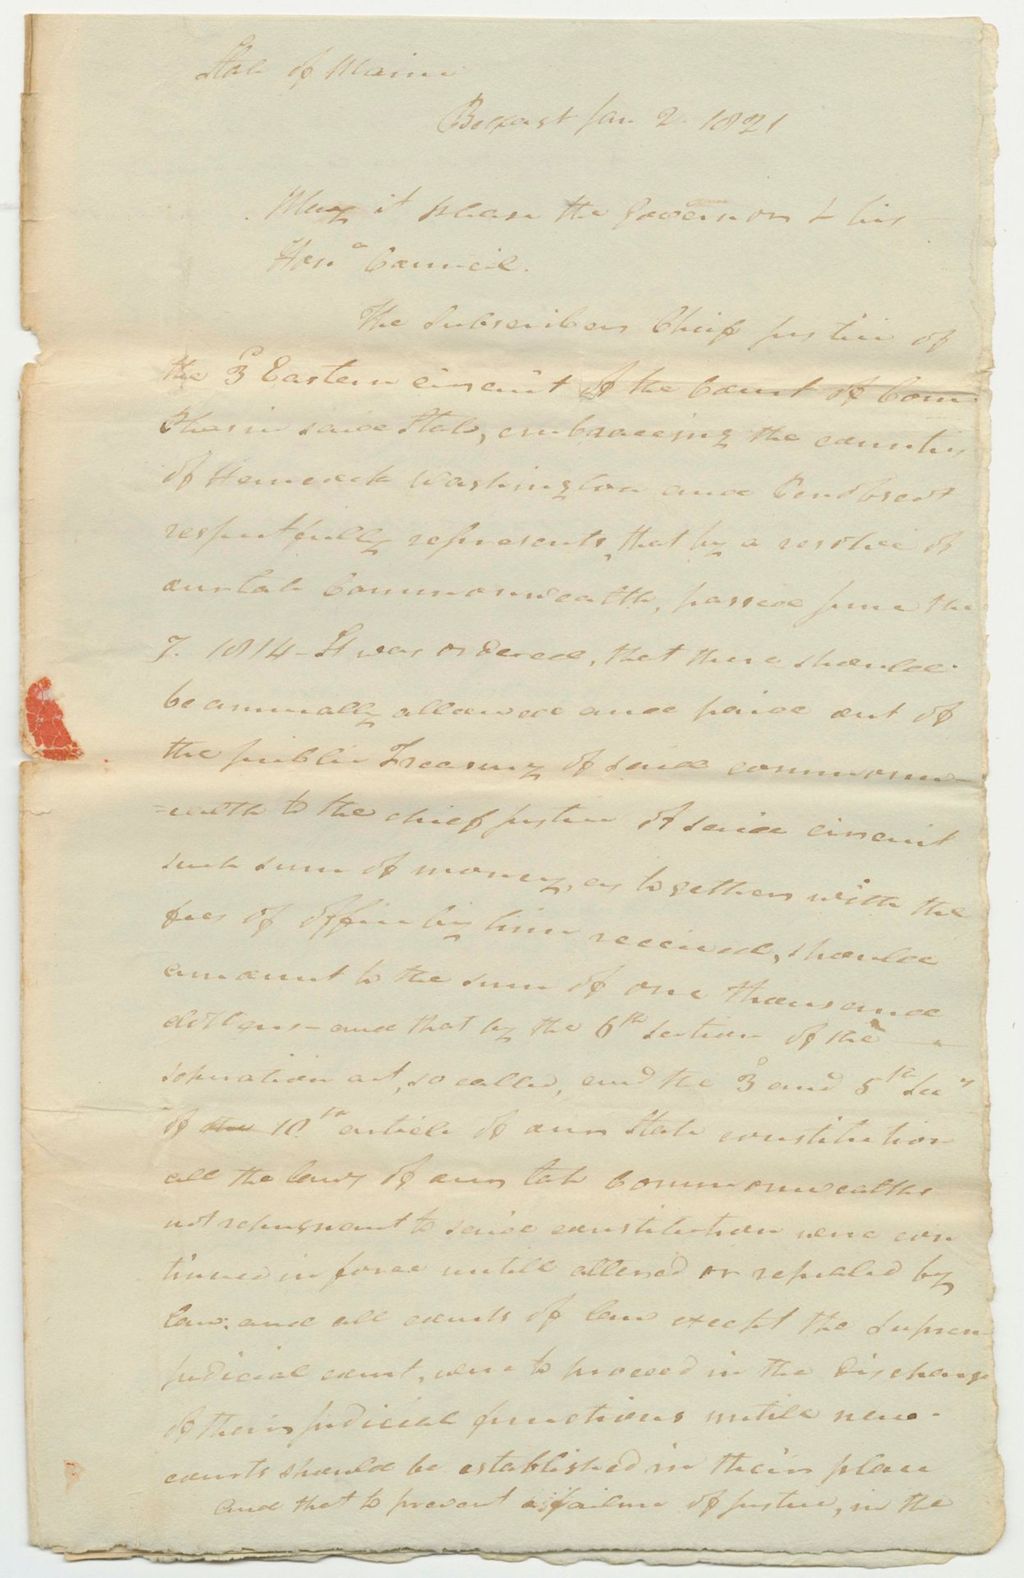 State of Maine
Belfast Jan 2. 1821
May it please the Governor & his
Hon.e Council.
The Subscriber Chief justice of
the 3d Eastern circuit of the Court of Com.
Pleas in said State, embracing the counties
of Hancock Washington and Penobscot
respectfully represents, that by a resolve of
our late Commonwealth, passed June the
7. 1814 - It was ordered, that there should
be annually allowed and paid out of
the public Treasury of said common-
=wealth to the chief justice of said circuit
such sum of money, as together with the
fees of office by him received, should
amount to the sum of one thousand
dollars - and that by the 6th Section of the
separation act, so called, and the 3d and 5th Sec
of the 10th article of our State constitution
all the laws of our late Commonwealth
not repugnant to said constitution were con
tinued in force untill altered or repealed by
law: and all courts of law except the Suprem
judicial court, were to proceed in the discharge
of their judicial functions untill new
courts should be established in their place
and that to prevent a failure of justice, in the